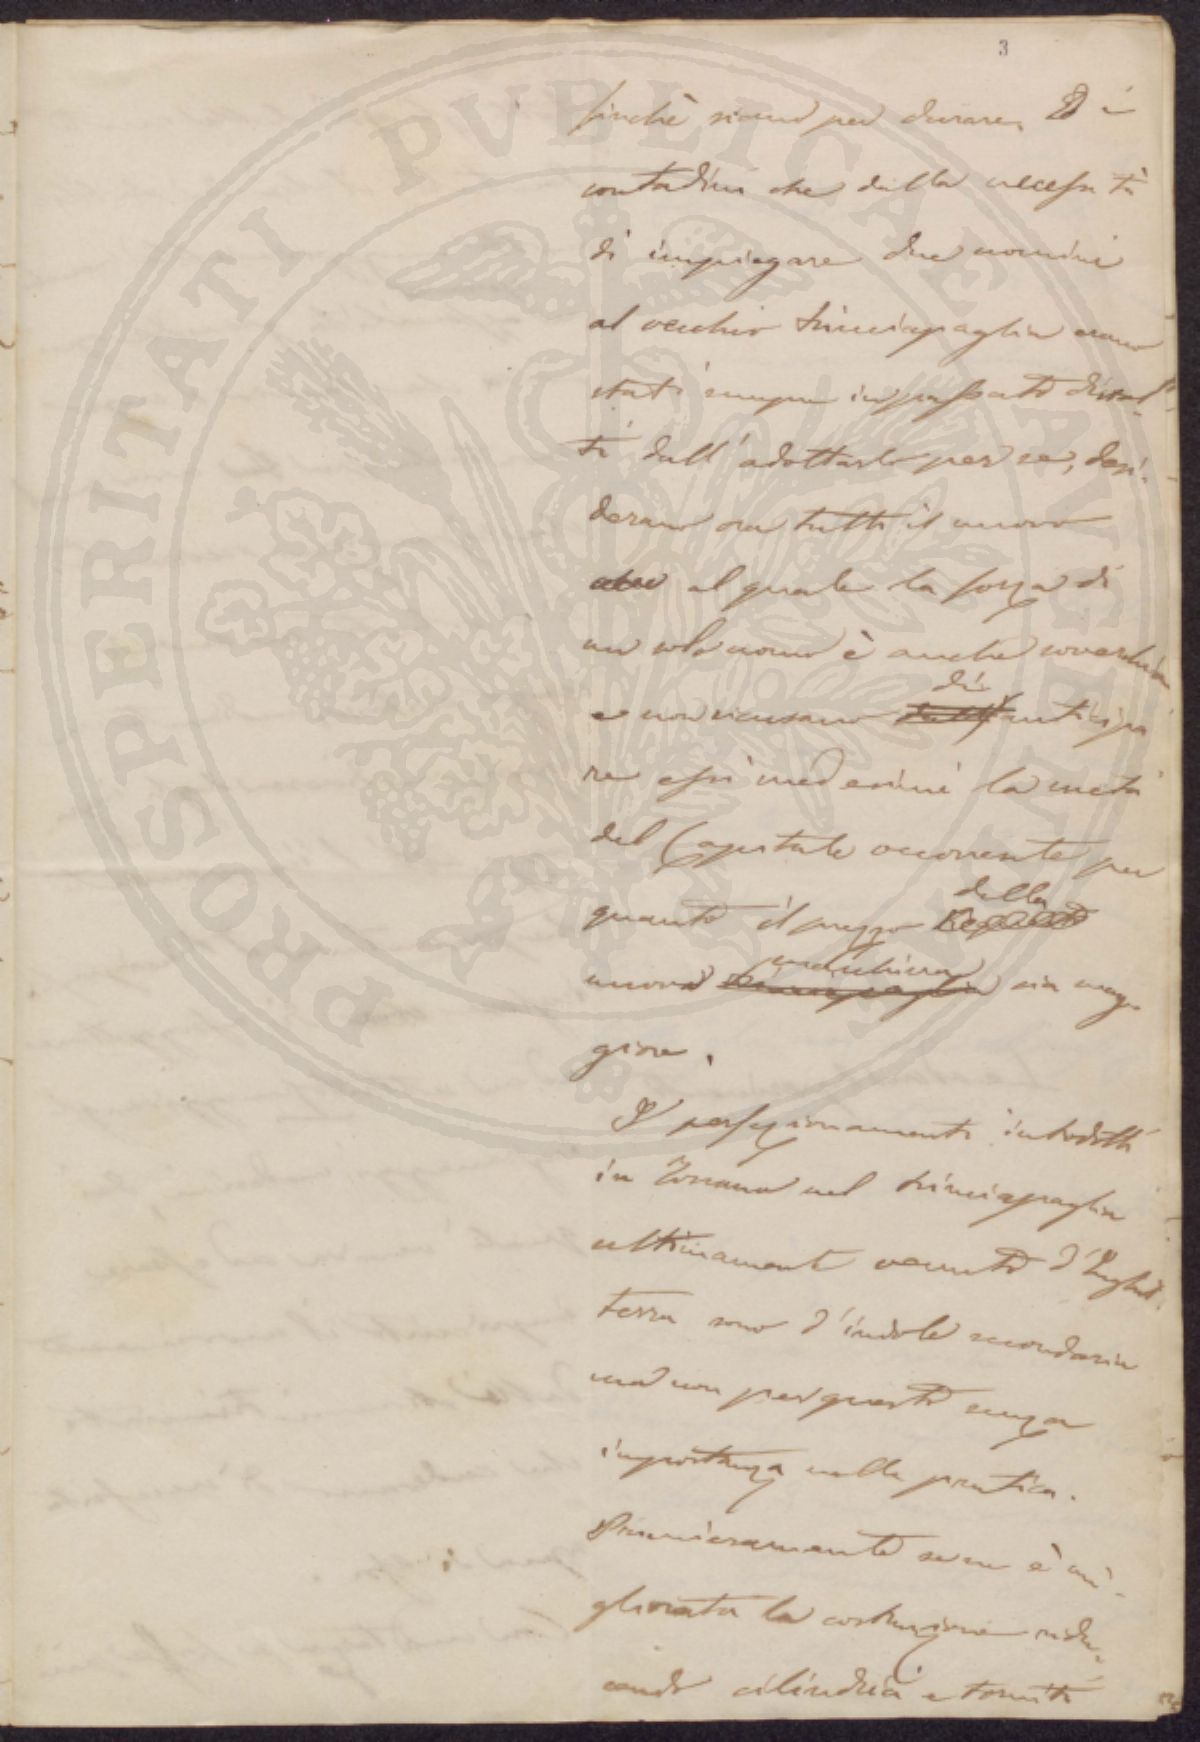 3
finchè siano per durare. E i
contadini che dalla necessità
di impiegare due uomini
al vecchio trinciapaglia erano
stati sempre in passato distol-
ti dall'adottarlo per se, desi-
derano ora tutti il nuovo
al quale la forza di
un solo uomo è anche soverchia
e non ricusano di anticipa
re essi medesimi la metà
del Capitale occorrente per
quanto il prezzo della
nuova macchina sia mag-
giore.
I perfezionamenti introdotti
in Toscana nel trinciapaglia
ultimamente venuto d'Inghil-
terra sono d'indole secondaria
ma non per questo senza
importanza nella pratica.
Primieramente se ne è mi-
gliorata la costruzione ridu-
cendo cilindrici e torniti
PROSPERITATI PVBLICAE AVGENDAE